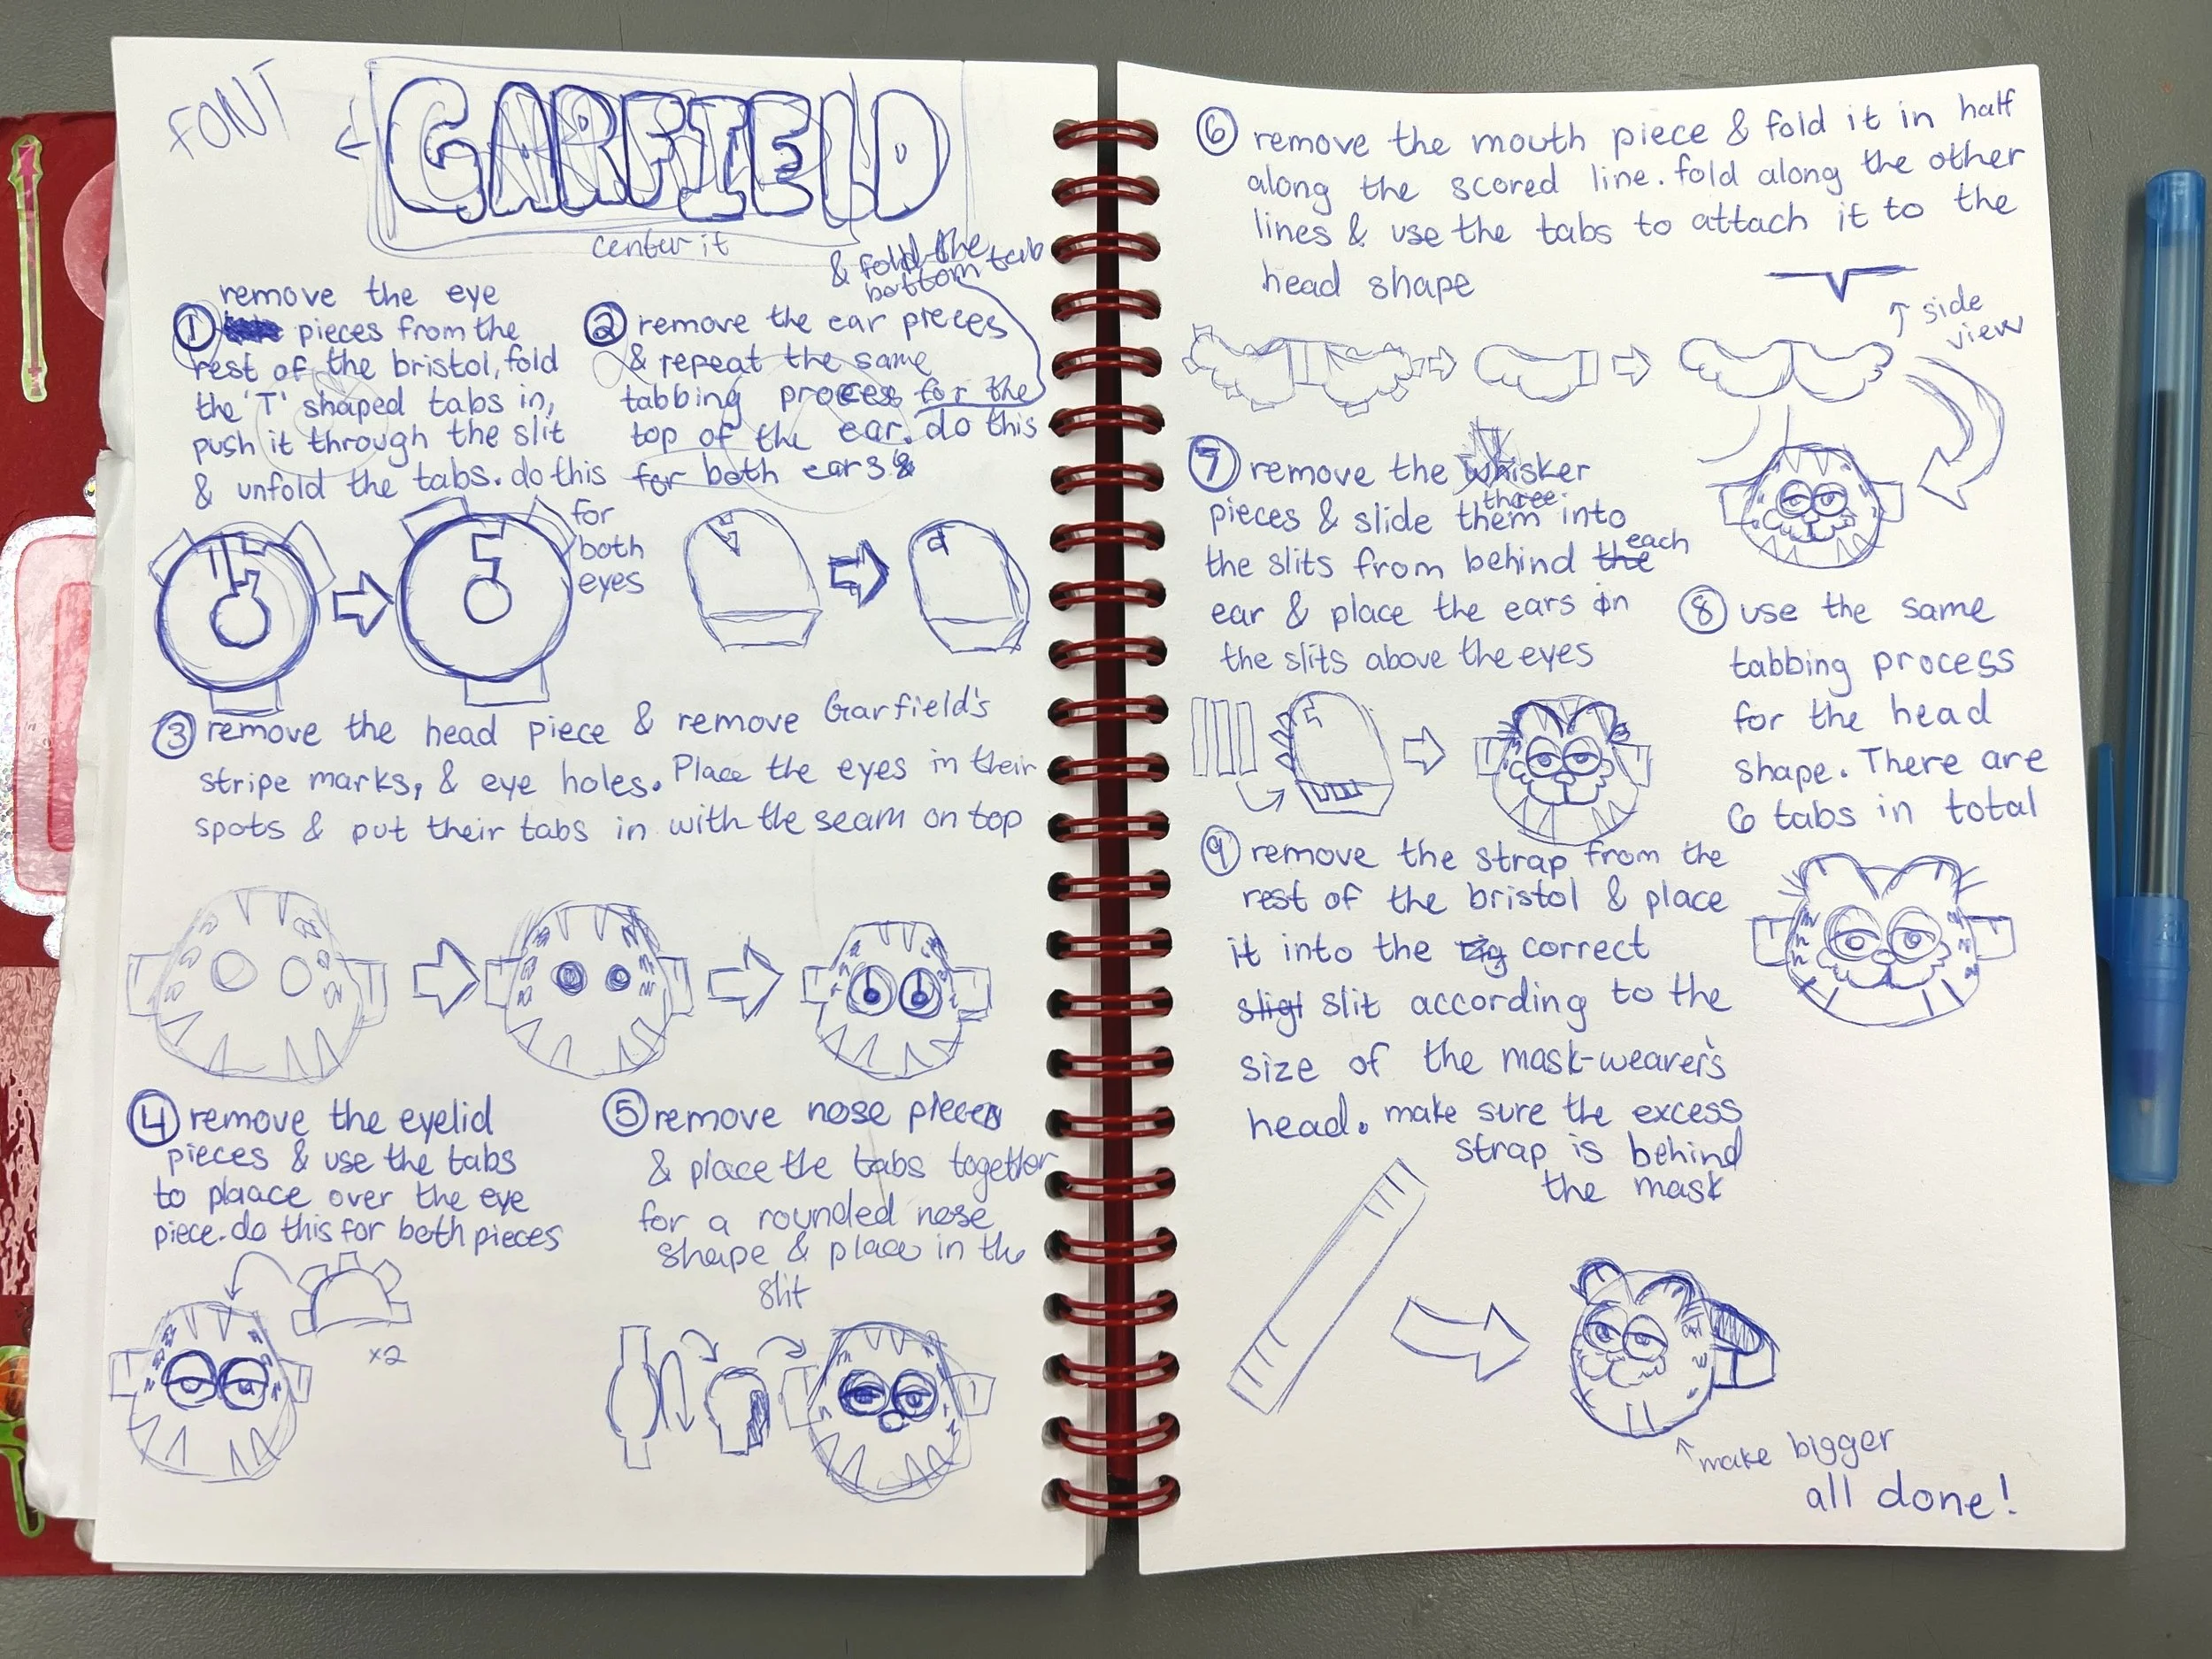 FONT
GARFIELD
center it
& fold the
bottom tab
① remove the eye
pieces from the
rest of the bristol, fold
the 'T' shaped tabs in,
push it through the slit
& unfold the tabs. do this
for
both
eyes
② remove the ear pieces
& repeat the same
tabbing process for the
top of the ear. do this
for both ears &
③ remove the head piece & remove Garfield's
stripe marks, & eye holes. Place the eyes in their
spots & put their tabs in with the seam on top
④ remove the eyelid
pieces & use the tabs
to plaace over the eye
piece. do this for both pieces
x2
⑤ remove nose pieces
& place the tabs together
for a rounded nose
shape & place in the
slit
⑥ remove the mouth piece & fold it in half
along the scored line. fold along the other
lines & use the tabs to attach it to the
head shape
↑ side
view
⑦ remove the whisker
three
pieces & slide them into
each
the slits from behind the
ear & place the ears in
the slits above the eyes
⑧ use the same
tabbing process
for the head
shape. There are
6 tabs in total
⑨ remove the strap from the
rest of the bristol & place
it into the correct
slit according to the
size of the mask-wearer's
head. make sure the excess
strap is behind
the mask
↑ make bigger
all done!